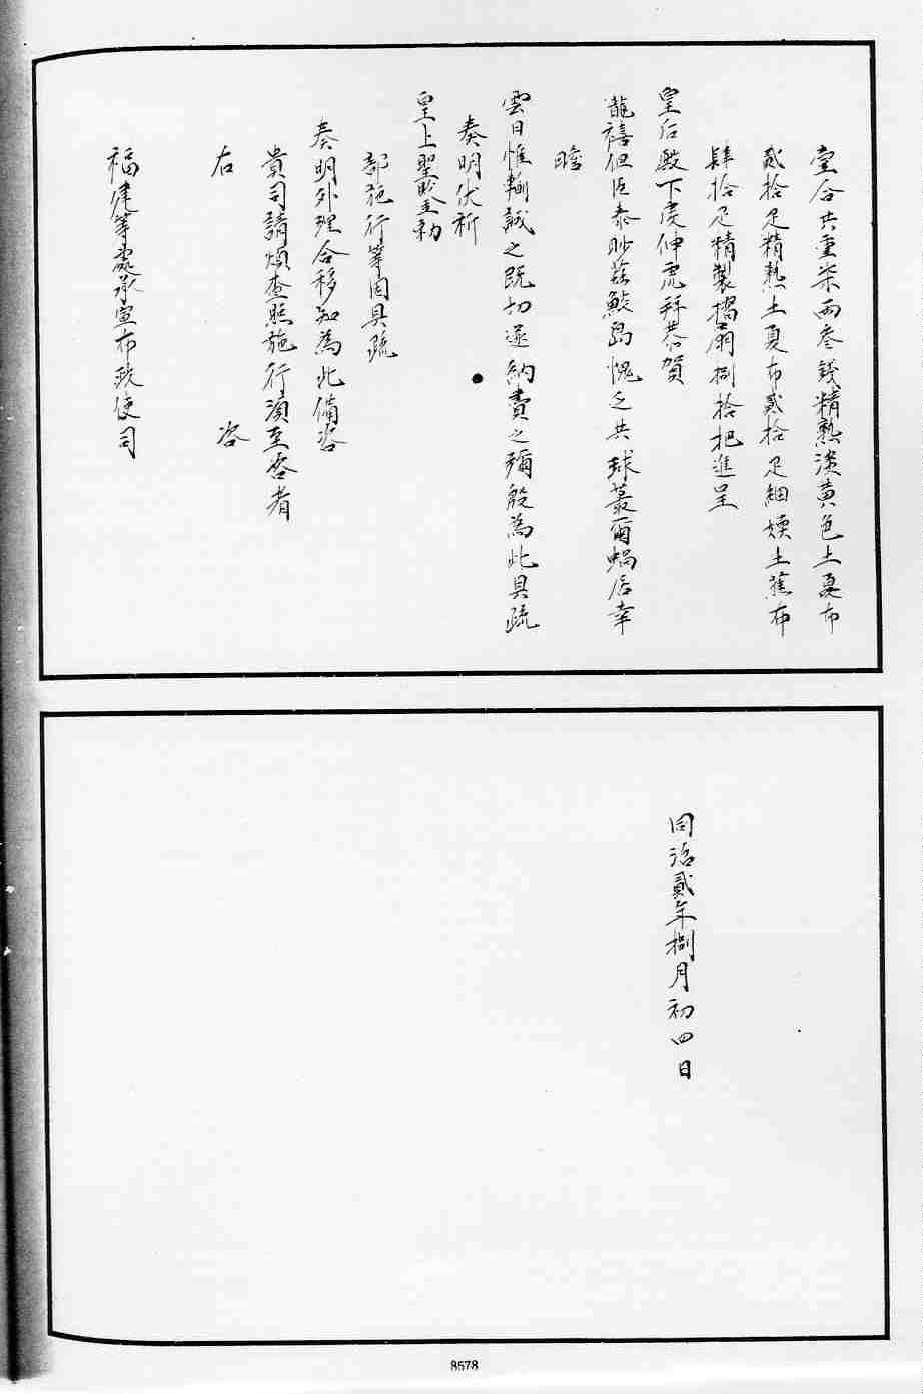 壹合共重柒兩叁錢精熟淡黄色土夏布
貳拾疋精熟土夏布貳拾疋細嫩土蕉布
肆拾疋精製摺扇捌拾把進呈
皇后殿下虔伸虎拜恭賀
龍禧但臣泰眇茲鮫島愧乏共球蕞爾蝸居幸
瞻
雲日惟輸誠之既切遂納貢之彌殷為此具疏
奏明伏祈
皇上聖鑒勅
部施行等因具疏
奏明外理合移知為此備咨
貴司請煩查照施行須至咨者
右 咨
福建等處承宣布政使司
同治貳年捌月初四日
8578